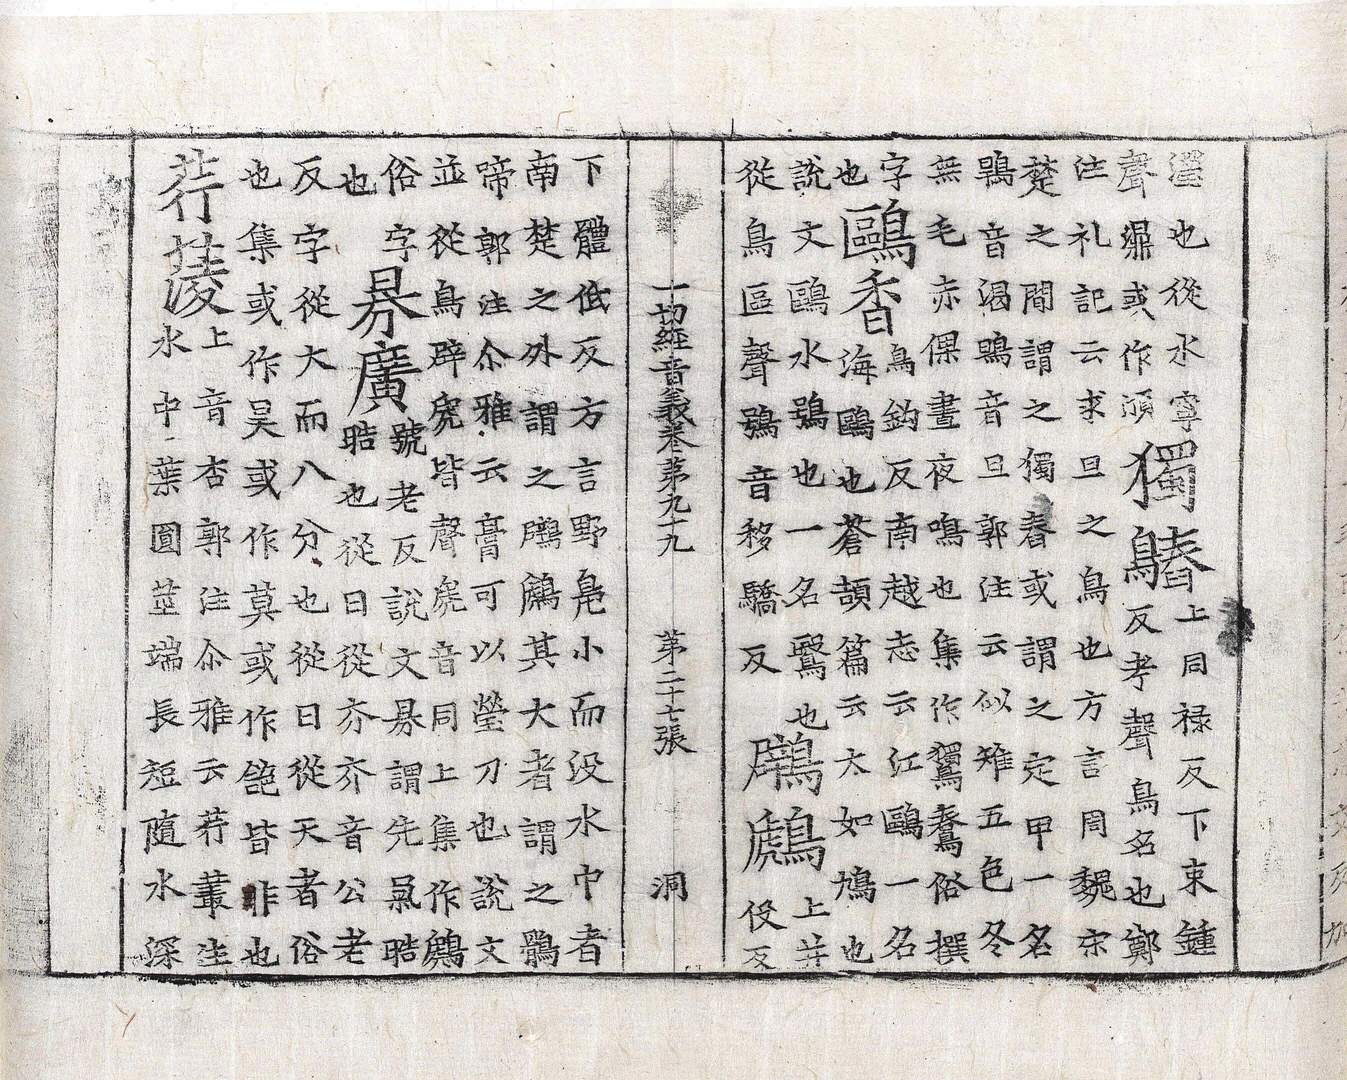 濘也從水寧
聲濎或作
獨
上同禄反下束鍾
反考聲鳥名也鄭
注礼記云求旦之鳥也方言周魏宋
楚之間謂之獨舂或謂之定甲一名
鶡音渇鴠音旦郭注云似雉五色冬
無毛赤倮晝夜鳴也集作俗撰
字
也
鷗香
鳥鈎反南越志云江鷗一名
海鷗也蒼頡篇云大如鳩也
說文鷗水鴞也一名鷖也
從鳥區聲鴞音移驕反
鷿鷉
上并
伇反
一切經音義卷第九十九 第二十七張 洞
下體低反方言野鳧小而没水中者
南楚之外謂之鷿鷉其大者謂之鶻
啼郭注尒雅云膏可以瑩刀也說文
並從鳥辟虒皆聲虒音同上集作鷉
俗字
也
昦廣
號老反說文昦謂先氣晧
晧也從日從夰夰音公老
反字從大而八分也從日從天者俗
也集或作昊或作莫或作皆非也
荇菱
上音杏郭注尒雅云荇叢生
水中葉圓莖端長短隨水深